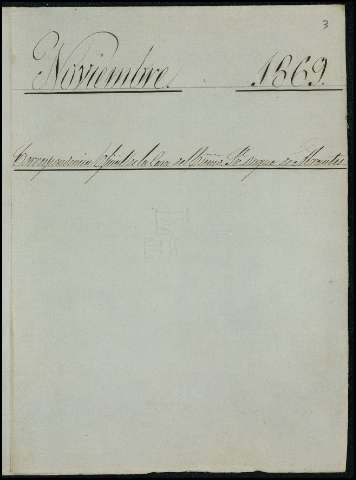 3
Noviembre. 1869.
Correspondencia oficial de la Casa del Excmo. Sr. Duque de Abrantes